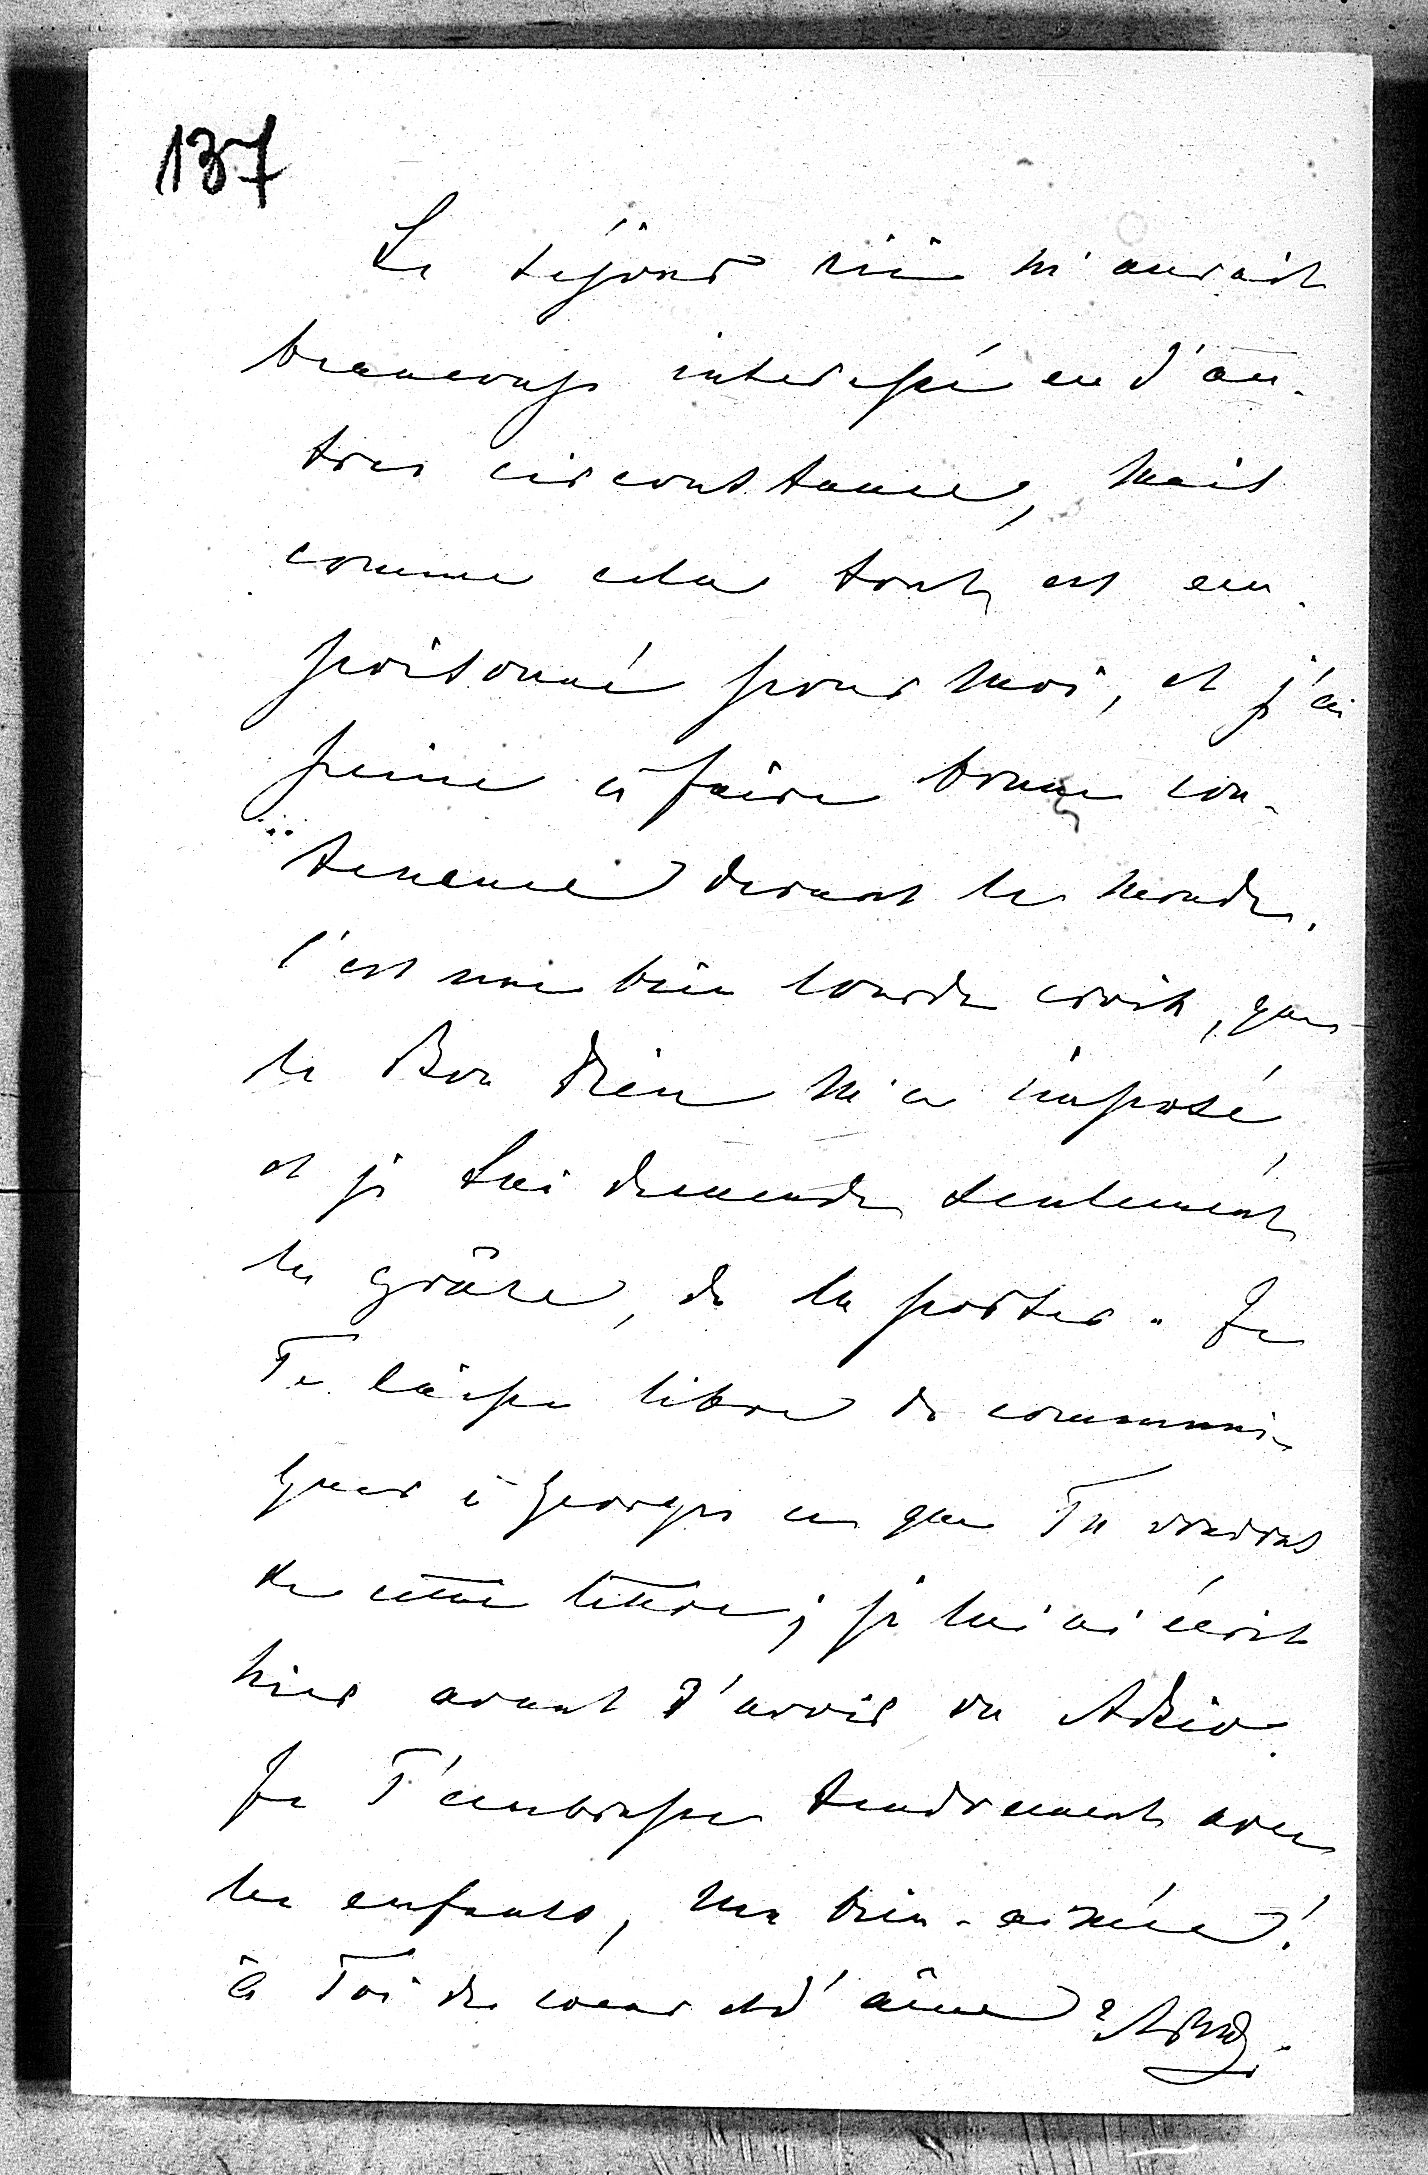 137
Le séjour ici m'aurait
beaucoup interessé en d'au-
tres circonstances, mais
comme cela tout est em-
poisonné pour moi, et j'ai
peine à faire bonne con-
tenance devant le monde.
C'est une bien lourde croix, que
le Bon Dieu m'a imposé,
et je Lui demande seulement
la grâce, de la porter. Je
Te laisse libre de communi-
quer à Georges ce que Tu voudras
de cette lettre; je lui ai écrit
hier avant d'avoir vu
Je T'embrasse tendrement avec
les enfants, ma bien-aimée!
à Toi de coeur et d'âme